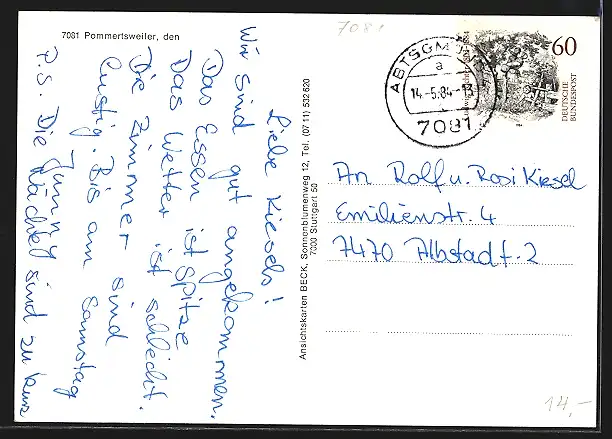 7081 Pommertsweiler, den
Liebe Kiesels!
Wir sind gut angekommen.
Das Essen ist Spitze
Das Wetter ist schlecht.
Die Zimmer sind
lustig. Bis am Samstag
P.S. Die Nächte sind zu kurz
Ansichtskarten BECK, Sonnenblumenweg 12, Tel. (07 11) 532620
7000 Stuttgart 50
7081
ABTSGMÜND
a
14.-5.84-13
7081
60
DEUTSCHE
BUNDESPOST
An Rolf u. Rosi Kiesel
Emilienstr. 4
7470 Albstadt-2
14,-